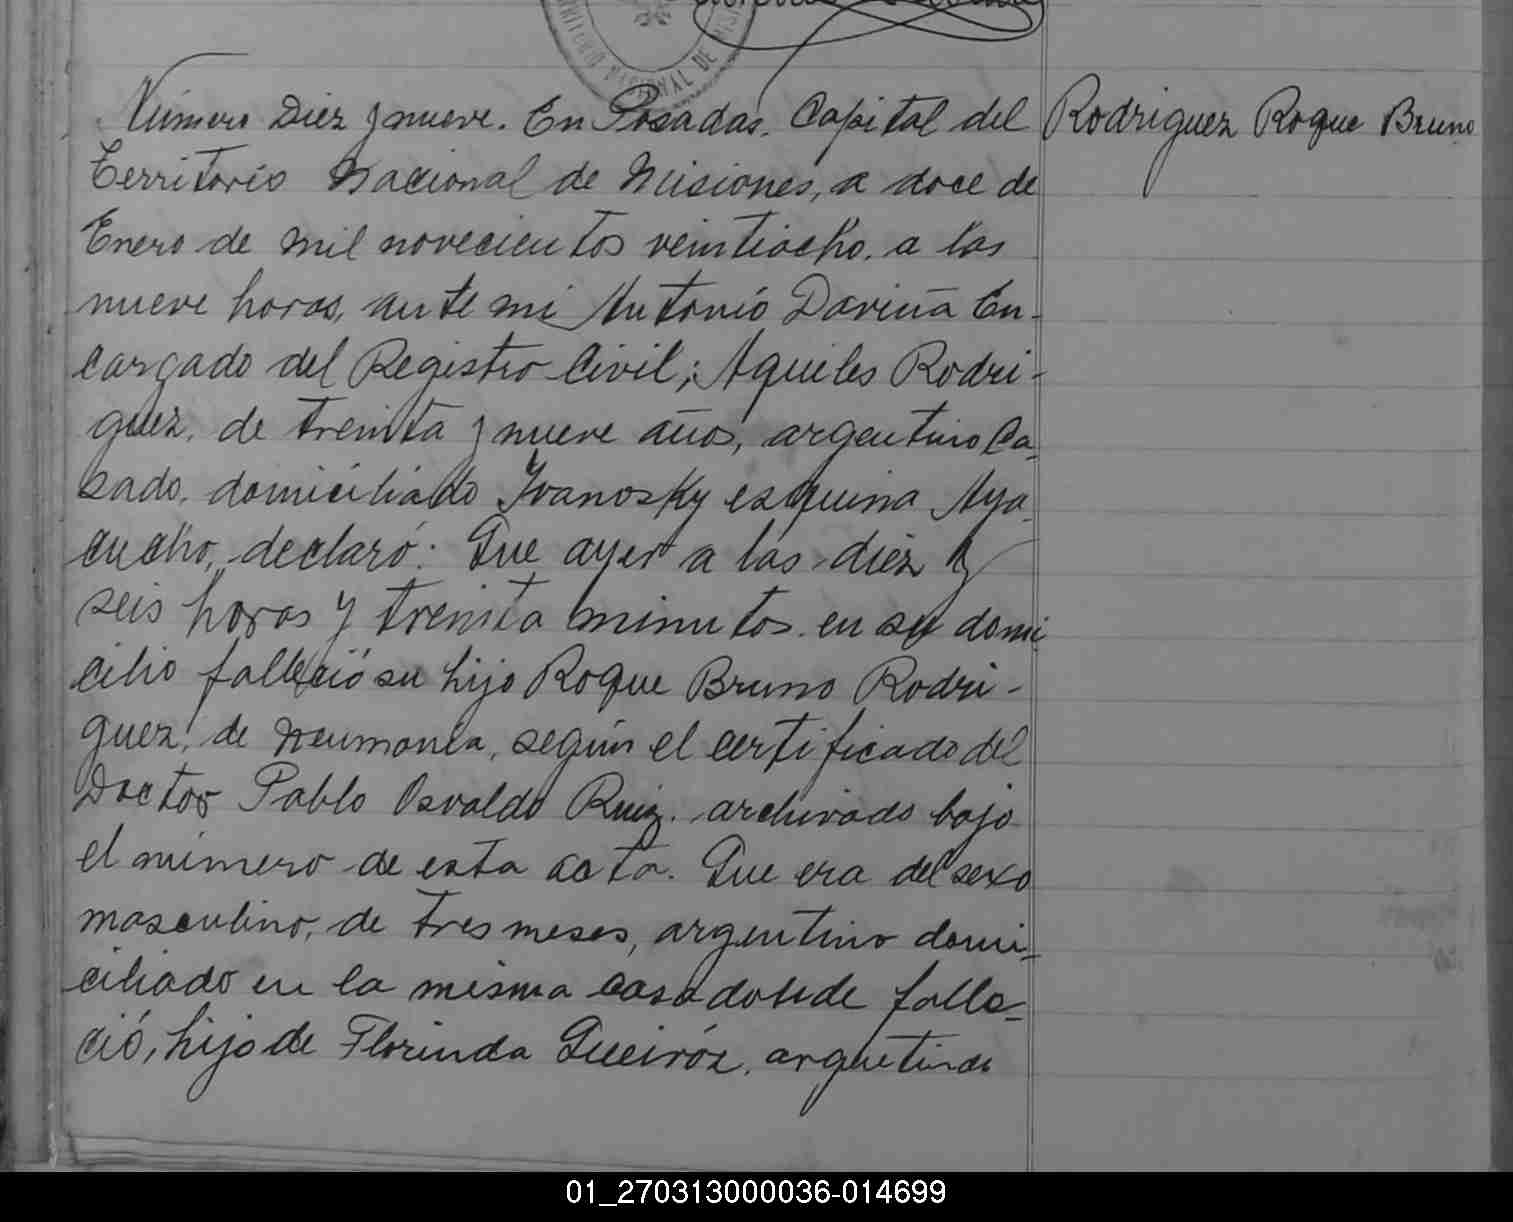 TERRITORIO NACIONAL DE MIS
Número Diez y nueve. En Posadas, Capital del
Rodriguez Roque Bruno
Territorio Nacional de Misiones, a doce de
Enero de mil novecientos veintiocho, a las
nueve horas, ante mi Antonio Daviña En-
cargado del Registro Civil; Aquiles Rodri-
guez, de treinta y nueve años, argentino Ca-
sado, domiciliado Ivanosky esquina Aya-
cucho, declaró: Que ayer a las diez y
seis horas y treinta minutos en su domi
cilio falleció su hijo Roque Bruno Rodri-
guez, de Neumonía, según el certificado del
Doctor Pablo Osvaldo Ruiz. archivado bajo
el número de esta acta. Que era del sexo
masculino, de tres meses, argentino domi-
ciliado en la misma casa donde falle-
ció, hijo de Florinda Queiróz, argentina
01_270313000036-014699